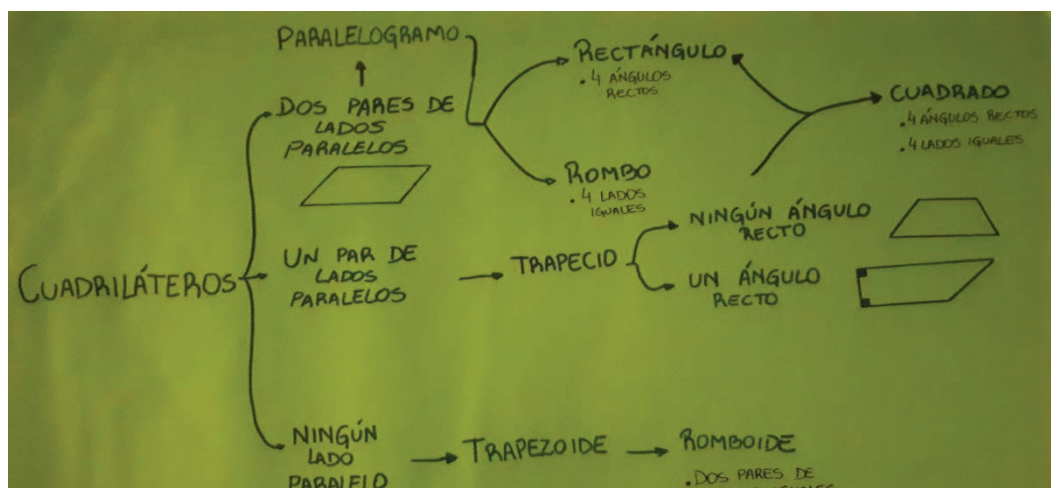 PARALELOGRAMO
DOS PARES DE
LADOS
PARALELOS
RECTÁNGULO
. 4 ÁNGULOS
RECTOS
ROMBO
. 4 LADOS
IGUALES
CUADRADO
. 4 ÁNGULOS RECTOS
. 4 LADOS IGUALES
CUADRILÁTEROS
UN PAR DE
LADOS
PARALELOS
TRAPECIO
NINGÚN ÁNGULO
RECTO
UN ÁNGULO
RECTO
NINGÚN
LADO
PARALELO
TRAPEZOIDE
ROMBOIDE
. DOS PARES DE